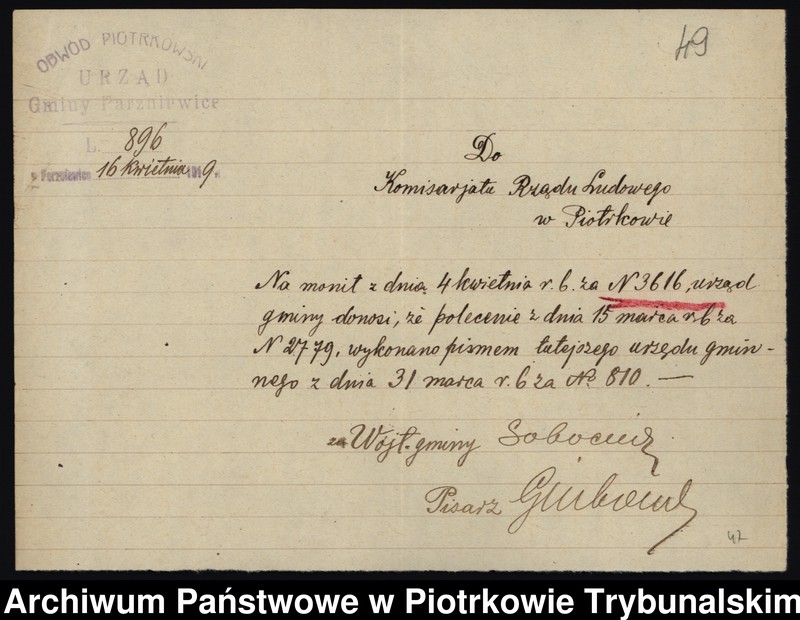 49
OBWÓD PIOTRKOWSKI
URZĄD
Gminy Parzniewice
L. 896
w Parzniewicach 16 kwietnia 1919 r.
Do
Komisarjatu Rządu Ludowego
w Piotrkowie
Na monit z dnia 4 kwietnia r. b. za N 3616, urząd
gminy donosi, że polecenie z dnia 15 marca r. b za
N 2779, wykonano pismem tutejszego urzędu gmin-
nego z dnia 31 marca r. b za № 810. —
za Wójt gminy
Pisarz
47
Archiwum Państwowe w Piotrkowie Trybunalskim